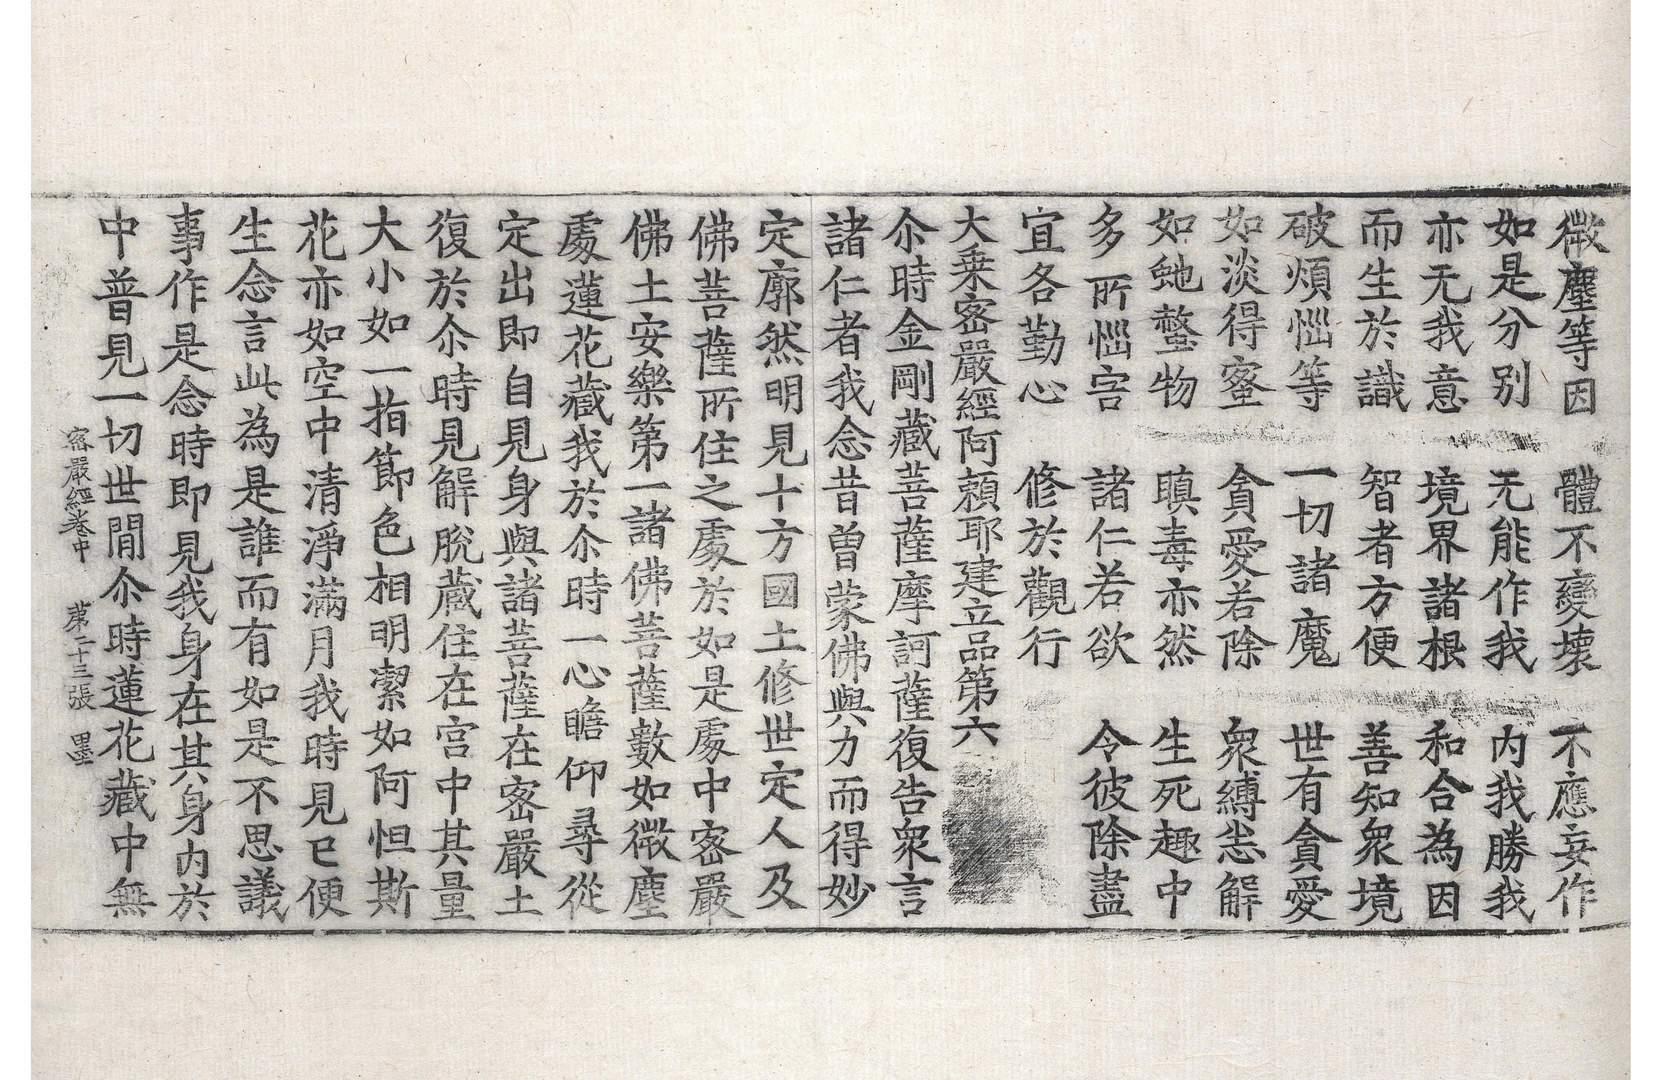 微塵等因　體不變壞　不應妄作
如是分别　无能作我　内我勝我
亦无我意　境界諸根　和合為因
而生於識　智者方便　善知衆境
破煩惱等　一切諸魔　世有貪愛
如淡得蜜　貪愛若除　衆縛悲解
如虵螫物　瞋毒亦然　生死趣中
多所惱害　諸仁若欲　令彼除盡
宜各勤心　修於觀行
大乗密嚴經阿頼耶建立品第六
尒時金剛藏菩薩摩訶薩復告衆言
諸仁者我念昔曽蒙佛與力而得妙
定廓然明見十方國土修世定人及
佛菩薩所住之處於如是處中密嚴
佛土安樂第一諸佛菩薩數如微塵
處蓮花藏我於尒時一心瞻仰尋從
定出即自見身與諸菩薩在密嚴土
復於尒時見解脫藏住在宫中其量
大小如一指節色相明潔如阿怛斯
花亦如空中清淨滿月我時見已便
生念言此為是誰而有如是不思議
事作是念時即見我身在其身内於
中普見一切世間尒時蓮花藏中無
密嚴經卷中　第二十三張　墨